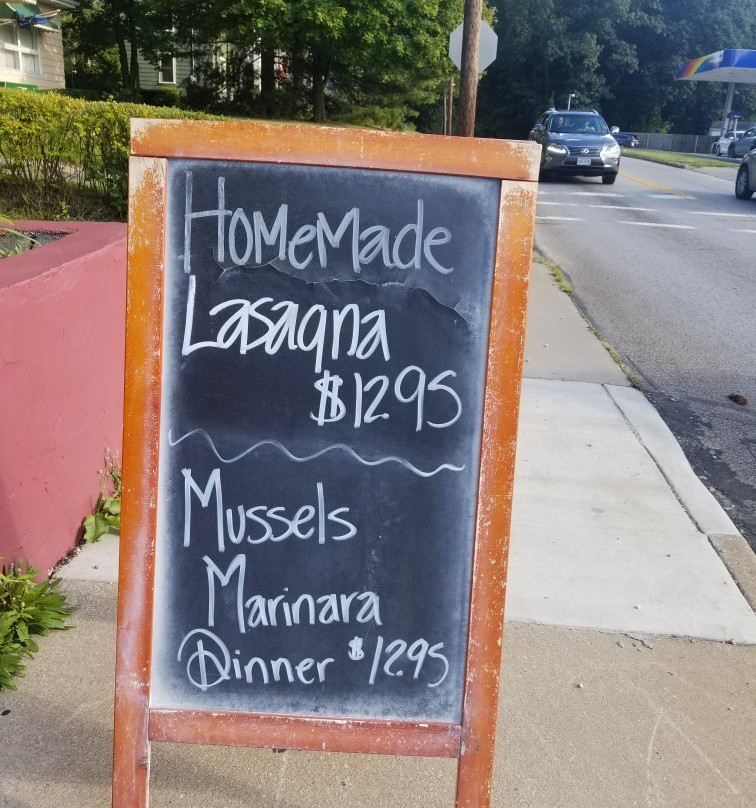 HomeMade
Lasagna
$12.95
Mussels
Marinara
Dinner $12.95